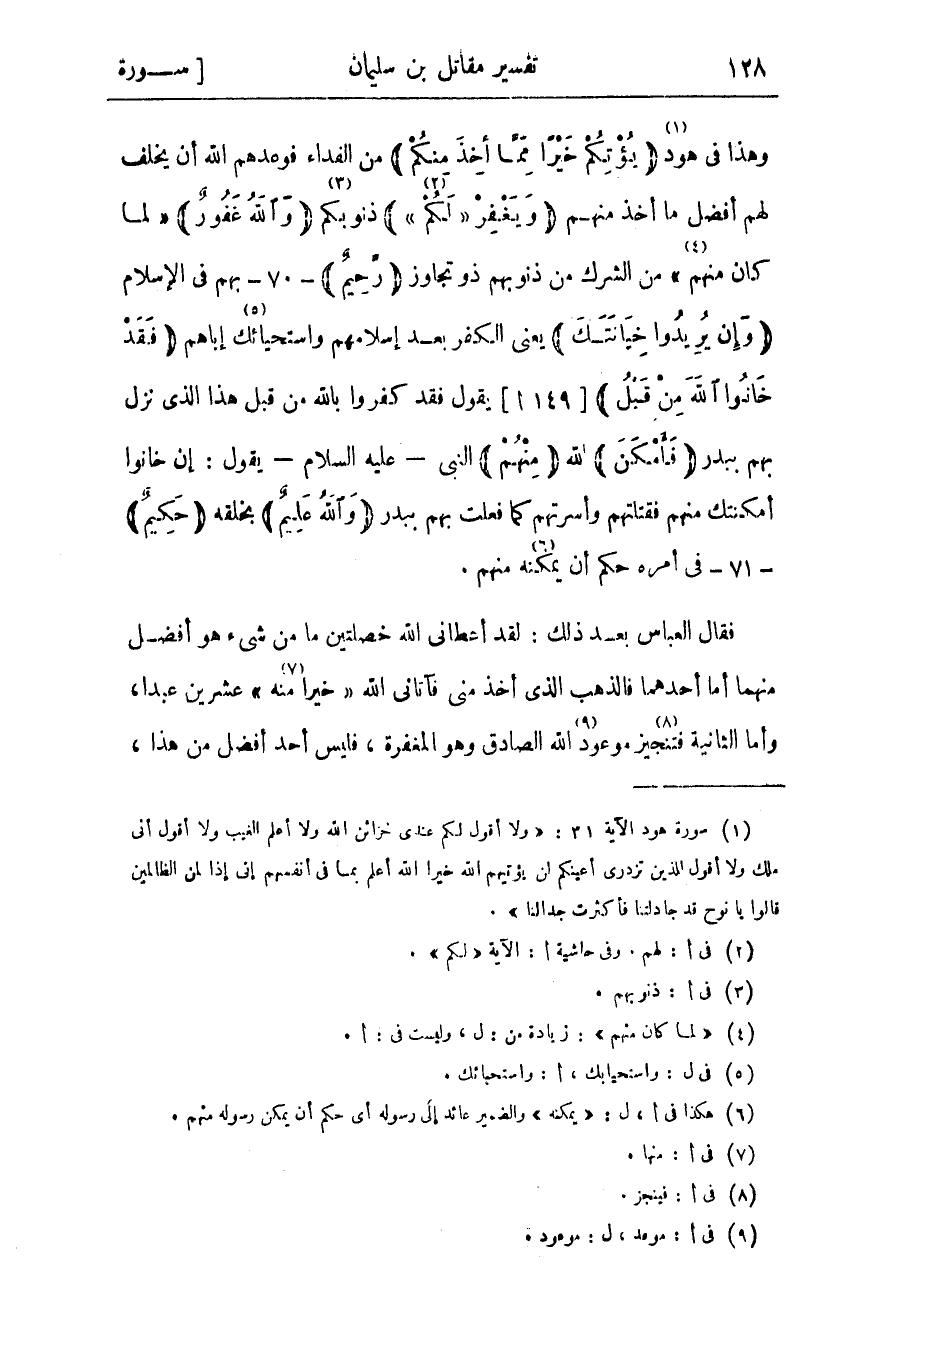 ١٢٨ تفسير مقاتل بن سليمان [ ســورة
وهذا فى هود (١) ﴿ يُؤْتِكُمْ خَيْرًا مِّمَّا أُخِذَ مِنكُمْ ﴾ من الفداء فوعدهم الله أن يخلف
لهم أفضل ما أخذ منهـم ﴿ وَيَغْفِرْ « لَكُمْ » (٢) ﴾ ذنوبكم (٣) ﴿ وَٱللَّهُ غَفُورٌ ﴾ « لمـا
كان منهم » (٤) من الشرك من ذنوبهم ذو تجاوز ﴿ رَّحِيمٌ ﴾ - ٧٠ - بهم فى الإسلام
﴿ وَإِن يُرِيدُوا خِيَانَتَـكَ ﴾ يعنى الكفر بعـد إسلامهم واستحيائك (٥) إياهم ﴿ فَقَدْ
خَانُوا ٱللَّهَ مِنْ قَبْلُ ﴾ [ ١٤٩ أ ] يقول فقد كفروا بالله من قبل هذا الذى نزل
بهم ببدر ﴿ فَأَمْكَنَ ﴾ الله ﴿ مِنْهُمْ ﴾ النبى — عليه السلام — يقول : إن خانوا
أمكنتك منهم فقتلتهم وأسرتهم كما فعلت بهم ببدر ﴿ وَٱللَّهُ عَلِيمٌ ﴾ بخلقه ﴿ حَكِيمٌ ﴾
- ٧١ - فى أمره حكم أن يمكنه (٦) منهم .
فقال العباس بعـد ذلك : لقد أعطانى الله خصلتين ما من شىء هو أفضـل
منهما أما أحدهما فالذهب الذى أخذ منى فآتانى الله « خيرا منه » (٧) عشرين عبدا ،
وأما الثانية فتنجيز (٨) موعود (٩) الله الصادق وهو المغفرة ، فليس أحد أفضل من هذا ،
(١) سورة هود الآية ٣١ : « ولا أقول لكم عندى خزائن الله ولا أعلم الغيب ولا أقول أنى
ملك ولا أقول للذين تزدرى أعينكم لن يؤتيهم الله خيرا الله أعلم بمـا فى أنفسهم إنى إذا لمن الظالمين
قالوا يا نوح قد جادلتنا فأكثرت جدالنا » .
(٢) فى أ : لهم . وفى حاشية أ : الآية « لكم » .
(٣) فى أ : ذنوبهم .
(٤) « لمـا كان منهم » : زيادة من : ل ، وليست فى : أ .
(٥) فى ل : واستحيابك ، أ : واستحيائك .
(٦) هكذا فى أ ، ل : « يمكنه » والضمير عائد إلَى رسوله أى حكم أن يمكن رسوله منهم .
(٧) فى أ : منها .
(٨) فى أ : فينجز .
(٩) فى أ : موعد ، ل : موعود .